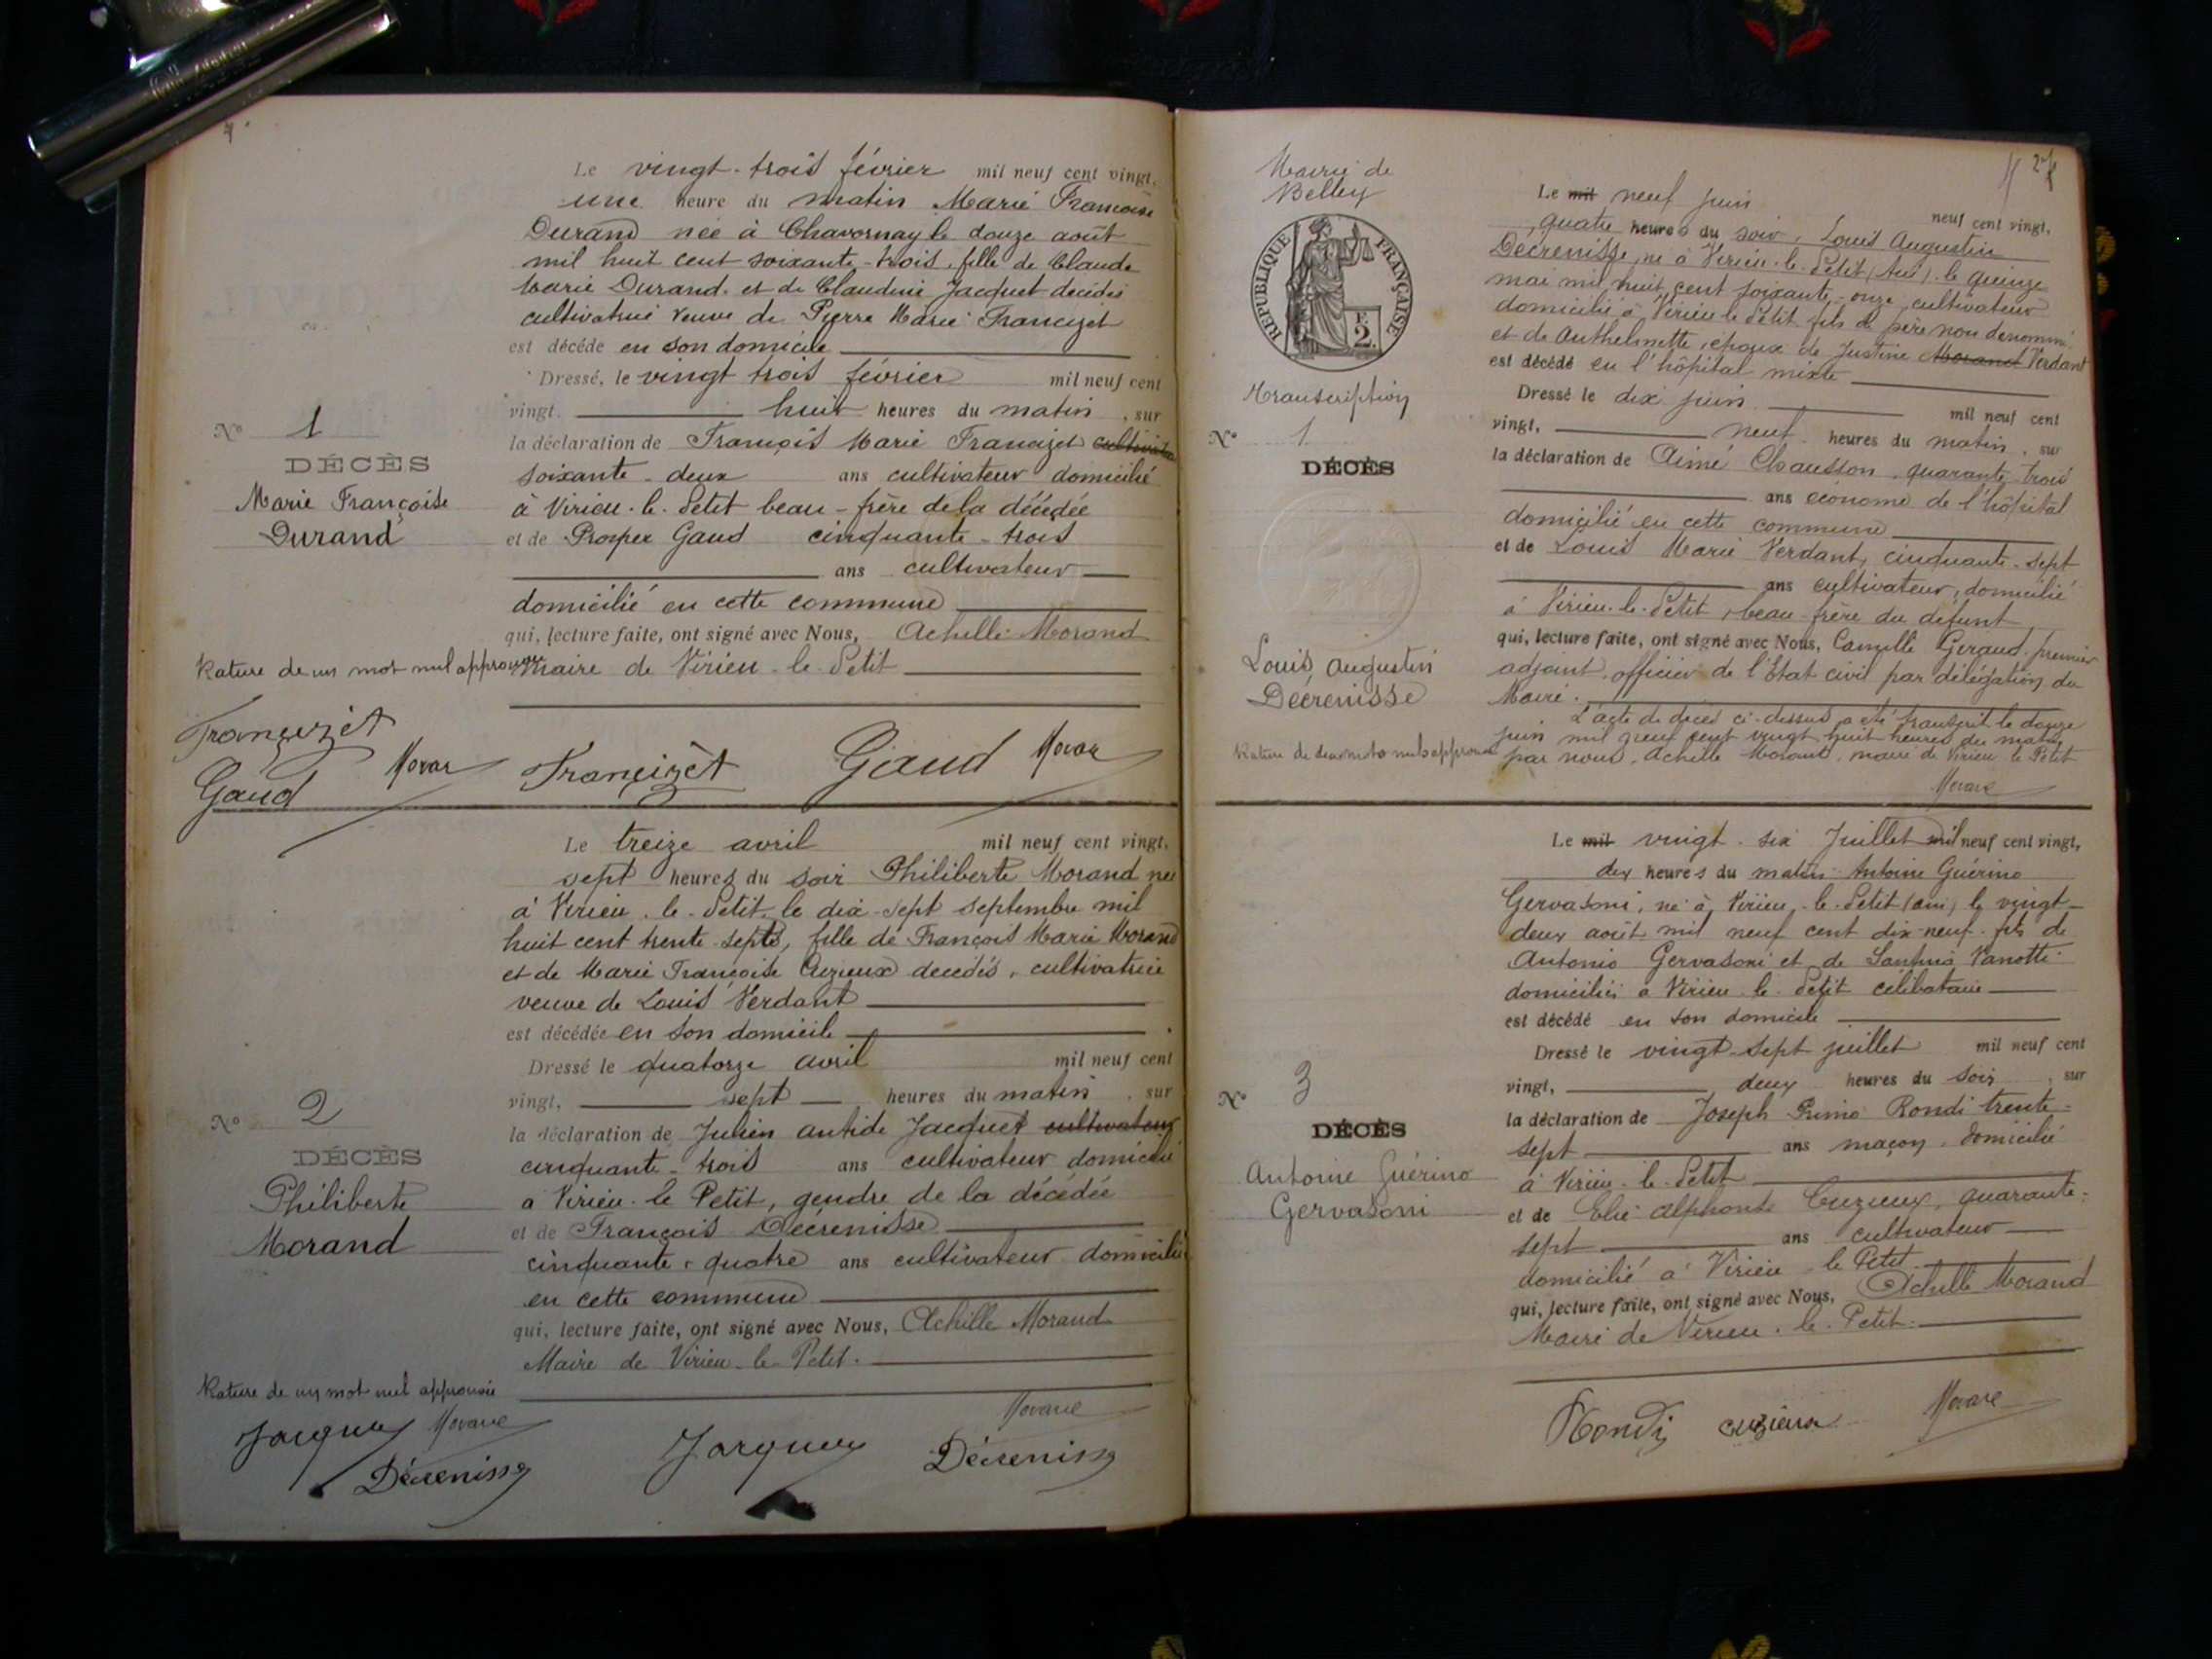 Le vingt-trois février mil neuf cent vingt,
une heure du matin Marie Françoise
Durand née à Chavornay le douze août
mil huit cent soixante-trois, fille de Claude
Marie Durand et de Claudine Jacquet décédés
cultivatrice veuve de Pierre Marie Francizet
est décédé en son domicile
Dressé, le vingt trois février mil neuf cent
vingt. huit heures du matin, sur
la déclaration de François Marie Francizet
soixante-deux ans cultivateur domicilié
à Virieu-le-Petit beau-frère de la décédée
et de Prosper Gaud cinquante-trois
ans cultivateur
domicilié en cette commune
qui, lecture faite, ont signé avec Nous, Achille Morand
maire de Virieu-le-Petit
No 1
DÉCÈS
Marie Françoise
Durand
Rature de un mot nul approuvée
Françizèt
Gaud
Françizèt
Gaud
Le treize avril mil neuf cent vingt,
sept heures du soir Philiberte Morand née
à Virieu-le-Petit, le dix-sept septembre mil
huit cent trente-sept, fille de François Marie Morand
et de Marie Françoise Cuzieux décédés, cultivatrice
veuve de Louis Verdant
est décédée en son domicile
Dressé le quatorze avril mil neuf cent
vingt, sept heures du matin, sur
la déclaration de Julien antide Jacquet cultivateur
cinquante-trois ans cultivateur domicilié
à Virieu-le Petit, gendre de la décédée
et de François Décrenisse
cinquante-quatre ans cultivateur domicilié
en cette commune
qui, lecture faite, ont signé avec Nous, Achille Morand
Maire de Virieu-le-Petit.
No 2
DÉCÈS
Philiberte
Morand
Rature de un mot nul approuvée
Jacquet
Décrenisse
Jacquet
Décrenisse
Mairie de
Belley
RÉPUBLIQUE FRANÇAISE
F.
2.
Transcription
No 1
DÉCÈS
Louis Augustin
Décrenisse
Rature de deux mots nuls approuvée
Le mil neuf juin neuf cent vingt,
quatre heures du soir, Louis Augustin
Décrenisse, né à Virieu-le-Petit (Ain) le quinze
mai mil huit cent soixante-onze cultivateur
domicilié à Virieu le Petit fils de père non dénommé
et de Anthelmette, époux de Justine Morand Verdant
est décédé en l'hôpital mixte
Dressé le dix juin mil neuf cent
vingt, neuf heures du matin, sur
la déclaration de Aimé Chausson, quarante-trois
ans économe de l'hôpital
domicilié en cette commune
et de Louis Marie Verdant, cinquante-sept
ans cultivateur, domicilié
à Virieu-le-Petit, beau-frère du défunt
qui, lecture faite, ont signé avec Nous, Camille Geraud premier
adjoint, officier de l'Etat civil par délégation du
Maire.
L'acte de décès ci-dessus a été transcrit le douze
juin mil neuf cent vingt huit heures du matin
par nous, Achille Morand, maire de Virieu le Petit
Le mil vingt-six Juillet mil neuf cent vingt,
dix heures du matin Antoine Guérino
Gervasoni, né à Virieu-le-Petit (ain) le vingt-
deux août mil neuf cent dix-neuf fils de
Antonio Gervasoni et de Santina Vanotti
domiciliés à Virieu-le-Petit célibataire
est décédé en son domicile
Dressé le vingt-sept juillet mil neuf cent
vingt, deux heures du soir, sur
la déclaration de Joseph Primo Rondi trente-
sept ans maçon, domicilié
à Virieu-le-Petit
et de Elie alphonse Cuzieux, quarante-
sept ans cultivateur
domicilié à Virieu le Petit
qui, lecture faite, ont signé avec Nous, Achille Morand
Maire de Virieu-le-Petit.
No 3
DÉCÈS
Antoine Guérino
Gervasoni
Rondi
cuzieux